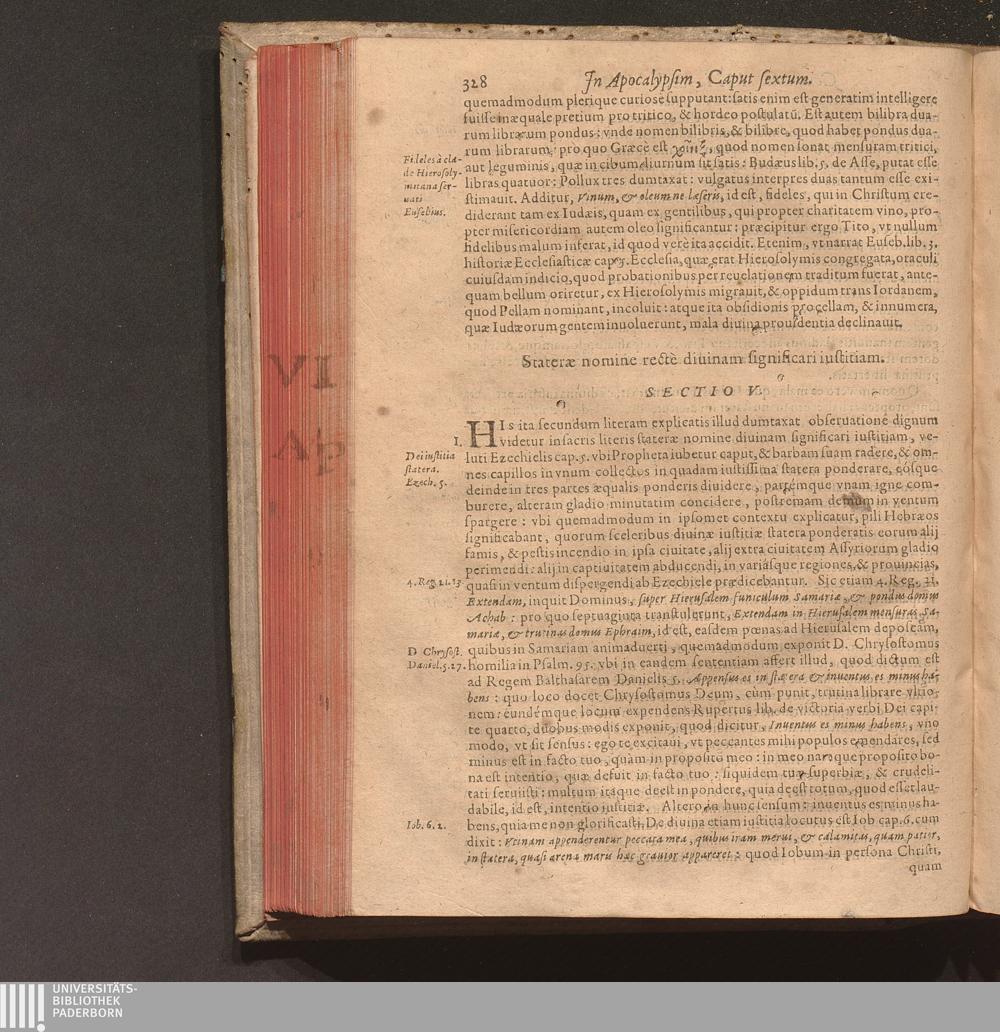 328 In Apocalypsim, Caput sextum.
quemadmodum plerique curiosè supputant: satis enim est generatim intelligere
fuisse inæquale pretium pro tritico, & hordeo postulatū. Est autem bilibra dua-
rum librarum pondus: vnde nomen bilibris, & bilibre, quod habet pondus dua-
rum librarum: pro quo Græcè est quod nomen sonat mensuram tritici,
Fideles à cla-
de Hierosoly-
mitana ser-
uati
Eusebius.
aut leguminis, quæ in cibum diurnum sit satis: Budæus lib. 5. de Asse, putat esse
libras quatuor: Pollux tres dumtaxat: vulgatus interpres duas tantum esse exi-
stimauit. Additur, Vinum, & oleum ne læseris, id est, fideles, qui in Christum cre-
diderant tam ex Iudæis, quam ex gentilibus, qui propter charitatem vino, pro-
pter misericordiam autem oleo significantur: præcipitur ergo Tito, vt nullum
fidelibus malum inferat, id quod verè ita accidit. Etenim, vt narrat Euseb. lib. 3.
historiæ Ecclesiasticæ cap. 5. Ecclesia, quæ erat Hierosolymis congregata, oraculi
cuiusdam indicio, quod probationibus per reuelationem traditum fuerat, ante-
quam bellum oriretur, ex Hierosolymis migrauit, & oppidum trans Iordanem,
quod Pellam nominant, incoluit: atque ita obsidionis procellam, & innumera,
quæ Iudæorum gentem inuoluerunt, mala diuina prouidentia declinauit.
Stateræ nomine rectè diuinam significari iustitiam.
SECTIO V.
HIs ita secundum literam explicatis illud dumtaxat obseruatione dignum
I.
videtur in sacris literis stateræ nomine diuinam significari iustitiam, ve-
Dei iustitia
statera.
Ezech. 5.
luti Ezechielis cap. 5. vbi Propheta iubetur caput, & barbam suam radere, & om-
nes capillos in vnum collectos in quadam iustissima statera ponderare, eósque
deinde in tres partes æqualis ponderis diuidere, partémque vnam igne com-
burere, alteram gladio minutatim concidere, postremam demum in ventum
spargere: vbi quemadmodum in ipsomet contextu explicatur, pili Hebræos
significabant, quorum sceleribus diuinæ iustitiæ statera ponderatis eorum alij
famis, & pestis incendio in ipsa ciuitate, alij extra ciuitatem Assyriorum gladio
perimendi: alij in captiuitatem abducendi, in variásque regiones, & prouincias,
4. Reg. 21. 13
quasi in ventum dispergendi ab Ezechiele prædicebantur. Sic etiam 4. Reg. 21.
Extendam, inquit Dominus, super Hierusalem funiculum Samariæ, & pondus domus
Achab: pro quo septuaginta transtulerunt, Extendam in Hierusalem mensuras Sa-
mariæ, & trutinas domus Ephraim, id est, easdem pœnas ad Hierusalem deposcam,
D. Chrysost.
Daniel. 5. 27.
quibus in Samariam animaduerti, quemadmodum exponit D. Chrysostomus
homilia in Psalm. 95. vbi in eandem sententiam affert illud, quod dictum est
ad Regem Balthasarem Danielis 5. Appensus es in statera & inuentus es minus ha-
bens: quo loco docet Chrysostomus Deum, cùm punit, trutina librare vltio-
nem: eundémque locum expendens Rupertus lib. de victoria verbi Dei capi-
te quarto, duobus modis exponit, quod dicitur, Inuentus es minus habens, vno
modo, vt sit sensus: ego te excitaui, vt peccantes mihi populos emendares, sed
minus est in facto tuo, quàm in proposito meo: in meo namque proposito bo-
na est intentio, quæ defuit in facto tuo: siquidem tuæ superbiæ, & crudeli-
tati seruisti: multum itaque deest in pondere, quia deest totum, quod esset lau-
dabile, id est, intentio iustitiæ. Altero in hunc sensum: inuentus es minus ha-
Iob. 6. 2.
bens, quia me non glorificasti. De diuina etiam iustitia locutus est Iob cap. 6. cum
dixit: Vtinam appenderentur peccata mea, quibus iram merui, & calamitas, quam patior,
in statera, quasi arena maris hæc grauior appareret: quod Iobum in persona Christi,
quam
VI
Ap
UNIVERSITÄTS-
BIBLIOTHEK
PADERBORN